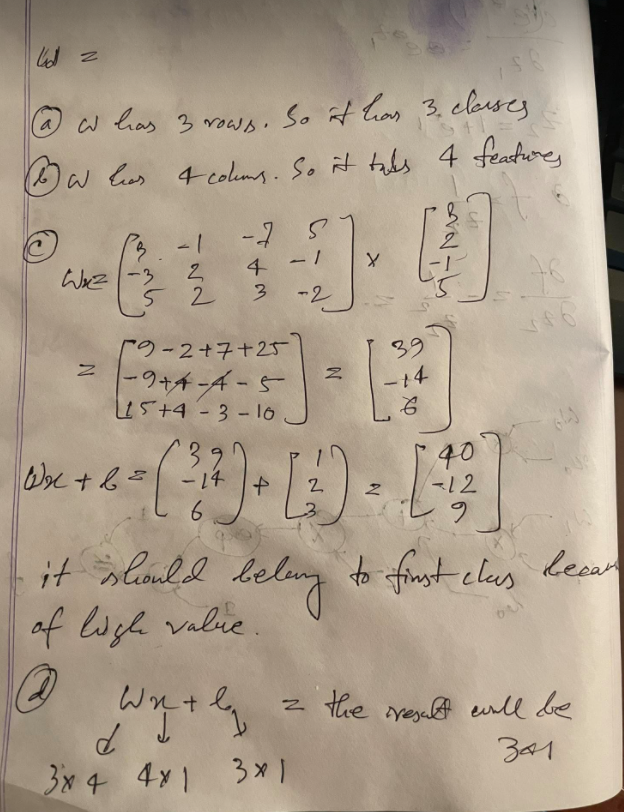 W =
(a) W has 3 rows. So it has 3 classes
(b) W has 4 colums. So it takes 4 features
(c)
Wx = [3 -1 -7 5
-3 2 4 -1
5 2 3 -2] × [3
2
-1
5]
= [9 - 2 + 7 + 25
-9 + 4 - 4 - 5
15 + 4 - 3 - 10] = [39
-14
6]
Wx + b = (39
-14
6) + [1
2
3] = [40
-12
9]
it should belong to first clas becau
of high value.
(d) Wx + b = the result will be
3×4 4×1 3×1 3×1